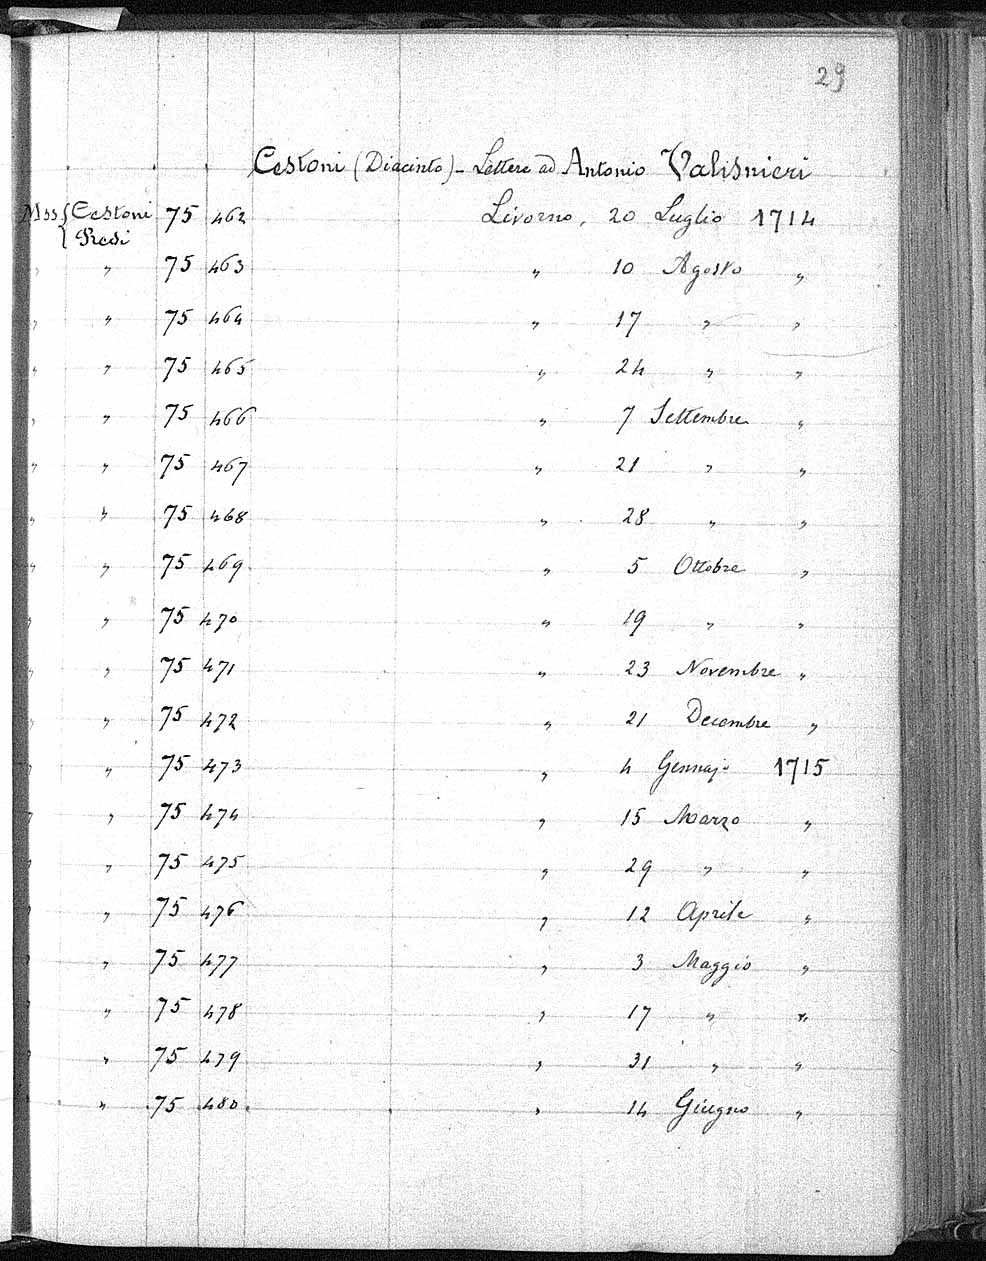 29
Cestoni (Diacinto) - Lettere ad Antonio Valisnieri
Mss { Cestoni 75 462 Livorno, 20 Luglio 1714
{ Redi
" " 75 463 " 10 Agosto "
" " 75 464 " 17 " "
" " 75 465 " 24 " "
" " 75 466 " 7 Settembre "
" " 75 467 " 21 " "
" " 75 468 " 28 " "
" " 75 469 " 5 Ottobre "
" " 75 470 " 19 " "
" " 75 471 " 23 Novembre "
" " 75 472 " 21 Decembre "
" " 75 473 " 4 Gennajo 1715
" " 75 474 " 15 Marzo "
" " 75 475 " 29 " "
" " 75 476 " 12 Aprile "
" " 75 477 " 3 Maggio "
" " 75 478 " 17 " "
" " 75 479 " 31 " "
" " 75 480 " 14 Giugno "